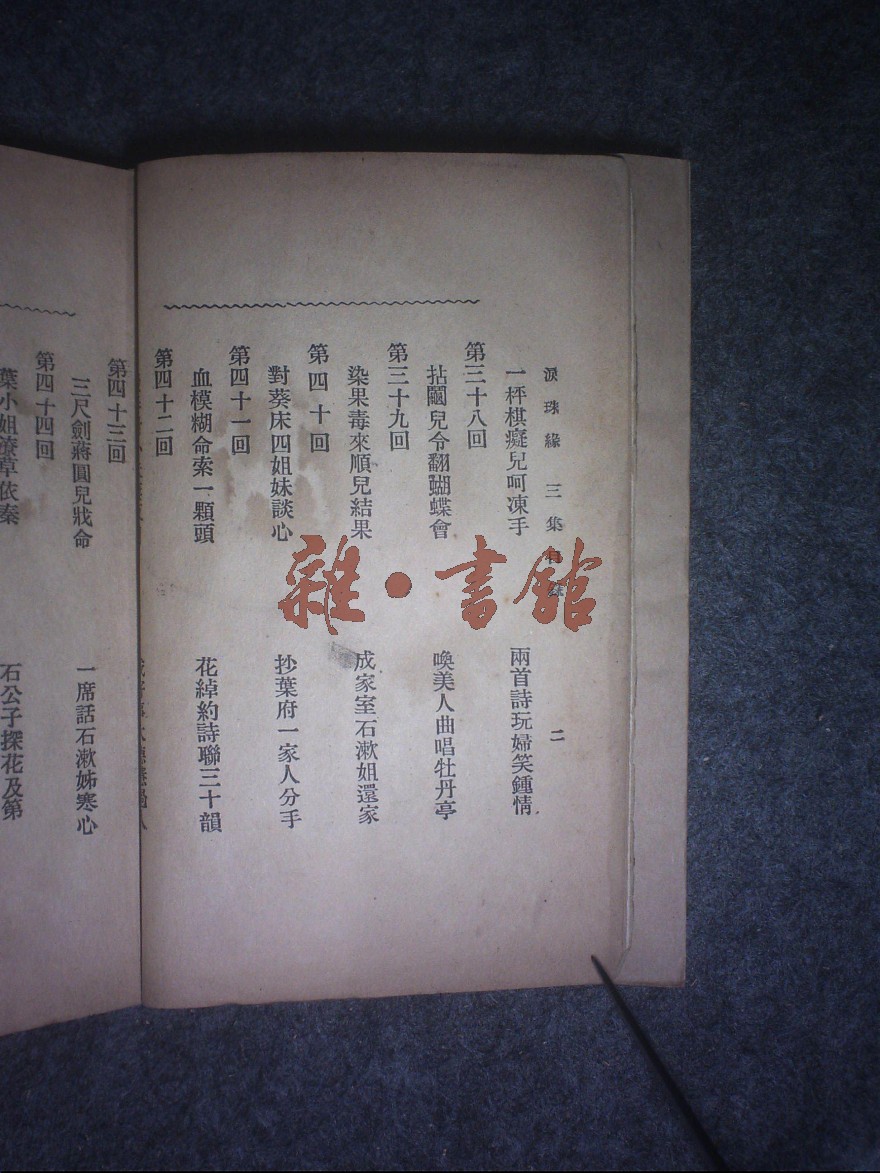 淚珠緣 三集目錄 二
一枰棋癡兒呵凍手 兩首詩玩婦笑鍾情
第三十八回
拈鬮兒令翻蝴蝶會 喚美人曲唱牡丹亭
第三十九回
染果毒來順兒結果 成家室石漱姐還家
第四十回
對葵床四姐妹談心 抄葉府一家人分手
第四十一回
血模糊命索一顆頭 花綽約詩聯三十韻
第四十二回
第四十三回
三尺劍蔣圓兒戕命 一席話石漱姊寒心
第四十四回
葉小姐潦草依秦 石公子探花及第
雜·書館